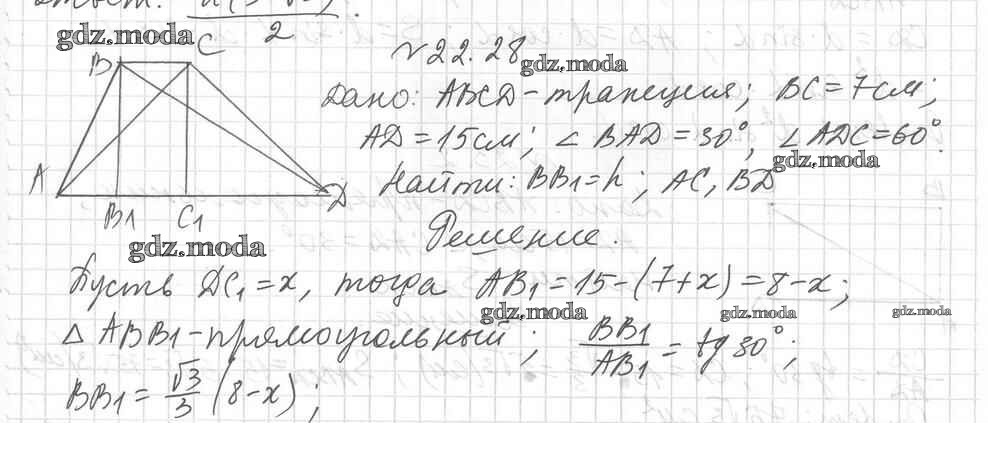 2
gdz.moda
C
B
№22.28
gdz.moda
Дано: ABCD-трапеция; BC=7см;
AD=15см; ∠BAD=30°, ∠ADC=60°.
gdz.moda
A
Найти: BB1=h; AC, BD
D
B1 C1
gdz.moda
Решение.
Пусть DC1=x, тогда AB1=15-(7+x)=8-x;
gdz.moda gdz.moda gdz.moda
Δ ABB1-прямоугольный; BB1/AB1 = tg 30°;
BB1 = √3/3 (8-x);